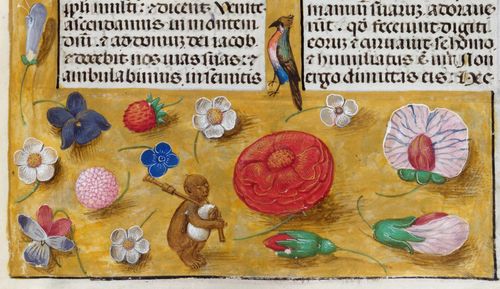 ppli multi: & dicent Venite
ascendamus in montem do
mi: & ad domū dei iacob
& docebit nos uias suas: &
ambulabimus in semitis
manuum suaꝝ adoraue
rūt: qđ fecerunt digiti
eorum & curuauit se homo
& humiliatus ē uir Non
ergo dimittas eis: